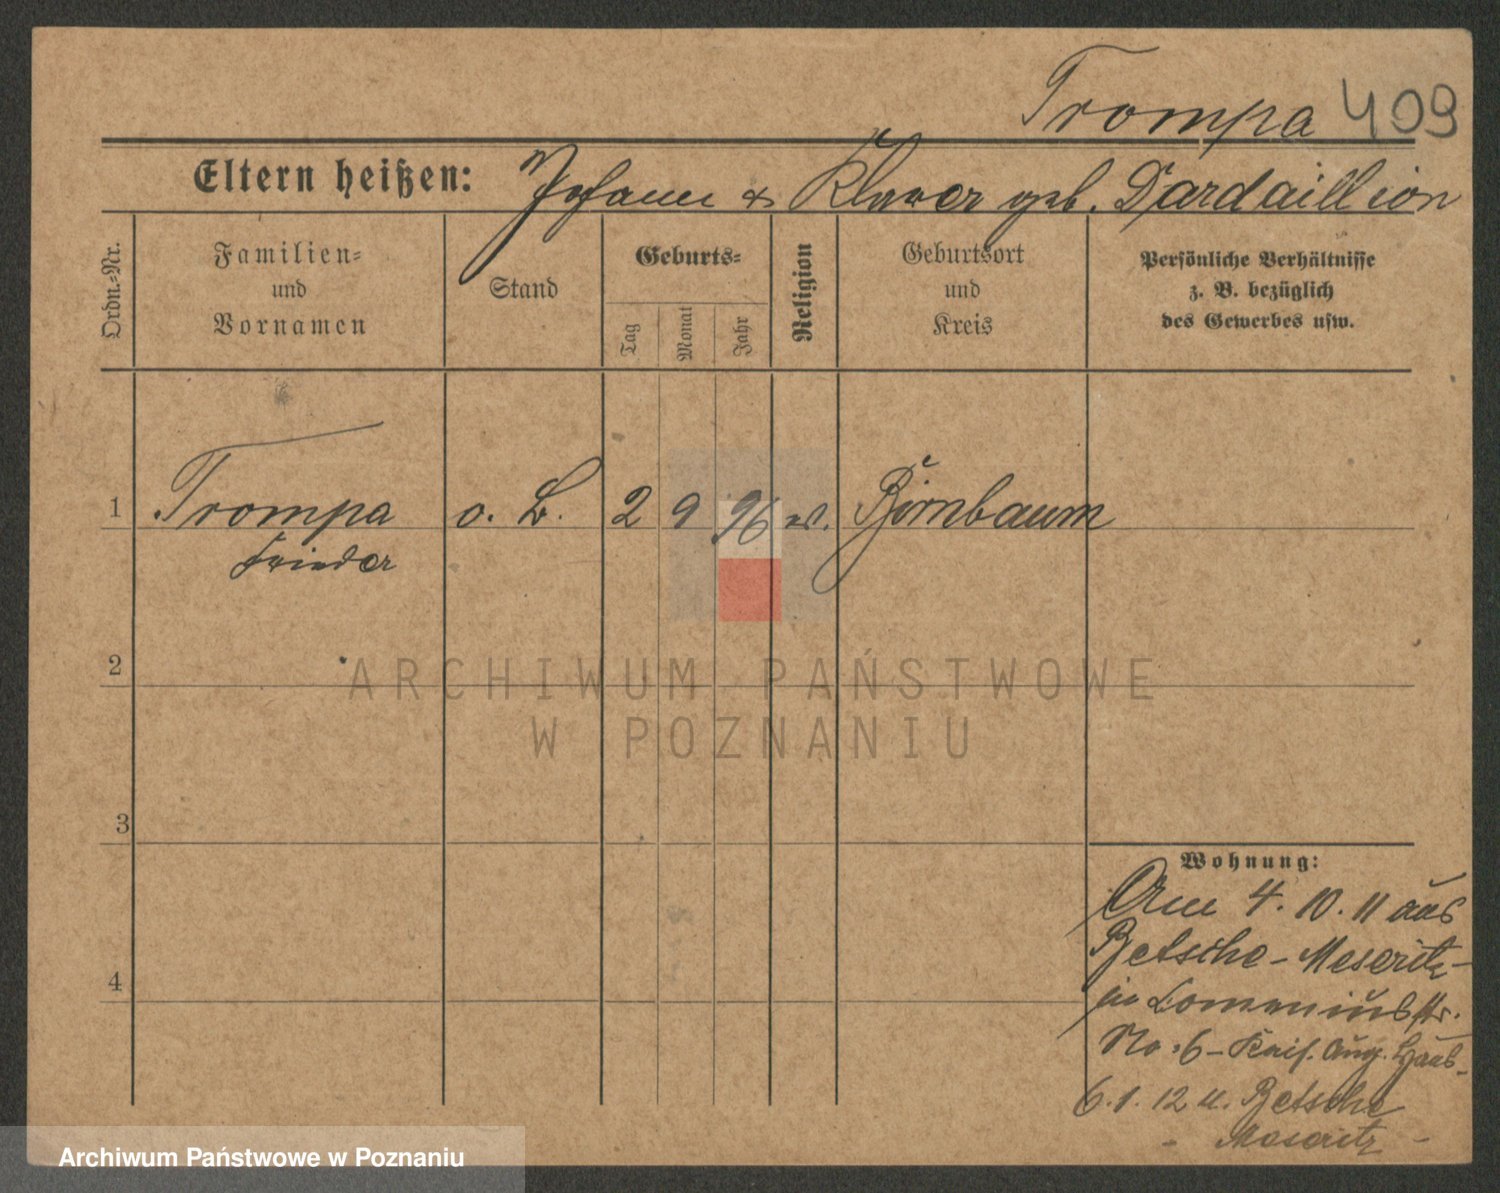 Trompa 409
Eltern heißen: Johann & Klara geb. Dardaillion
Ordn.-Nr.
Familien-
und
Vornamen
Stand
Geburts-
Tag
Monat
Jahr
Religion
Geburtsort
und
Kreis
Persönliche Verhältnisse
z. B. bezüglich
des Gewerbes usw.
1 Trompa o. B. 2 9 96 ev. Birnbaum
2
ARCHIWUM PAŃSTWOWE
W POZNANIU
3
4
Wohnung:
Am 4. 10. 11 aus
Betsche - Meseritz -
in Comeniusstr.
No. 6 - Kais. Aug. Haus -
6. 1. 12 n. Betsche
- Meseritz -
Archiwum Państwowe w Poznaniu